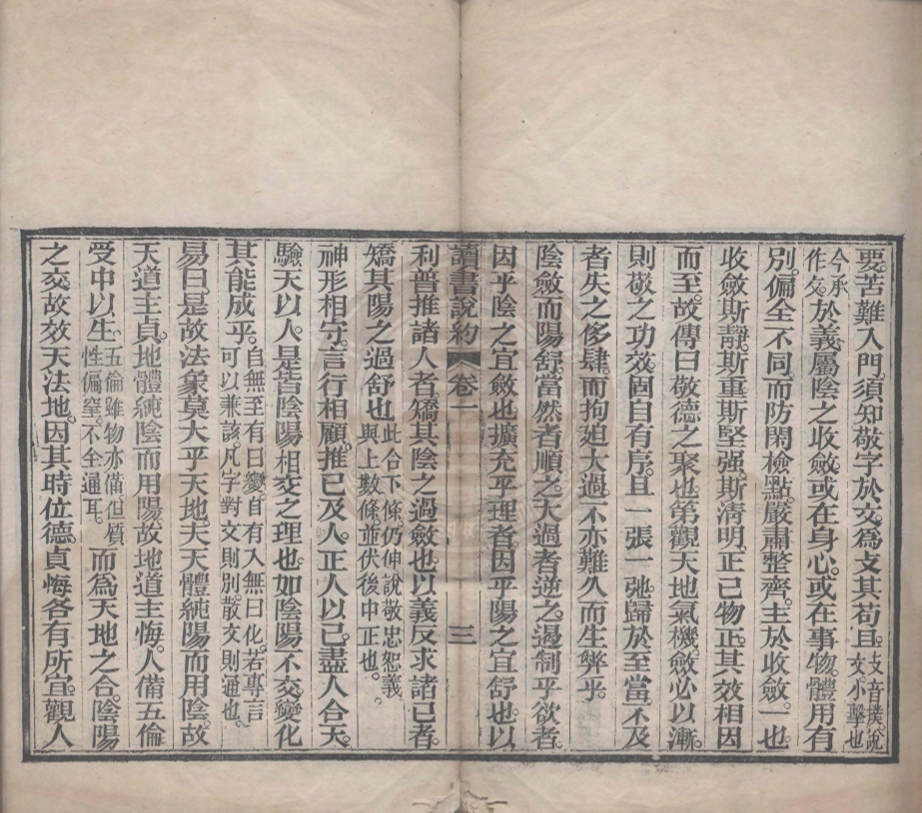 要苦難入門須知敬字於文爲攴其苟且攴音撲說文小擊也
今承作攵於義屬陰之收斂或在身心或在事物體用有
別偏全不同而防閑檢點嚴肅整齊主於收斂一也
收斂斯靜斯重斯堅强斯清明正己物正其效相因
而至故傳曰敬德之聚也第觀天地氣機斂必以漸
則敬之功效固自有序且一張一弛歸於至當不及
者失之侈肆而拘廹大過不亦難久而生弊乎
陰斂而陽舒當然者順之大過者逆之遏制乎欲者
因乎陰之宜斂也擴充乎理者因乎陽之宜舒也以
讀書說約 卷一 三
利普推諸人者矯其陰之過斂也以義反求諸己者
矯其陽之過舒也此合下條仍伸說敬忠恕義與上數條並伏後中正也
神形相守言行相顧推己及人正人以己盡人合天
驗天以人是皆陰陽相交之理也如陰陽不交變化
其能成乎自無至有曰變自有入無曰化若專言可以兼該凡字對文則別散文則通也
易曰是故法象莫大乎天地夫天體純陽而用陰故
天道主貞地體純陰而用陽故地道主悔人備五倫
受中以生五倫雖物亦備但質性偏窒不全通耳而爲天地之合陰陽
之交故效天法地因其時位德貞悔各有所宜觀人